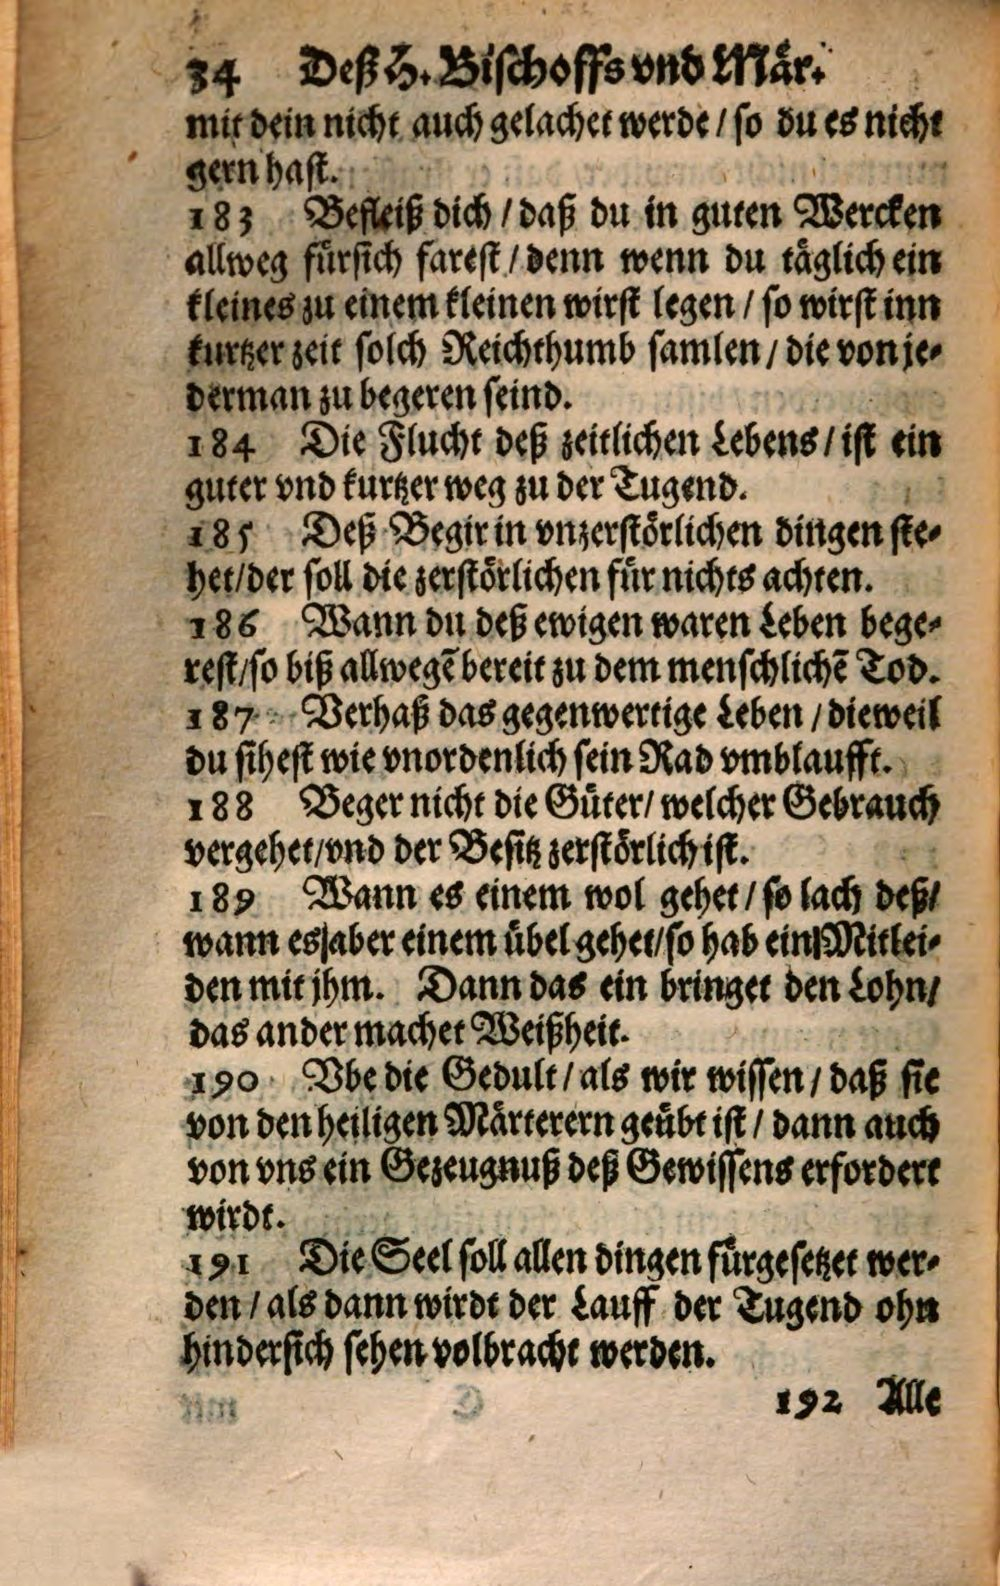 34 Deß H. Bischoffs vnd Mär.
mit dein nicht auch gelachet werde / so du es nicht
gern hast.
183 Befleiß dich / daß du in guten Wercken
allweg fürsich farest / denn wenn du täglich ein
kleines zu einem kleinen wirst legen / so wirst inn
kurtzer zeit solch Reichthumb samlen / die von je-
derman zu begeren seind.
184 Die Flucht deß zeitlichen Lebens / ist ein
guter vnd kurtzer weg zu der Tugend.
185 Deß Begir in vnzerstörlichen dingen ste-
het/der soll die zerstörlichen für nichts achten.
186 Wann du deß ewigen waren Leben bege-
rest/so biß allwegē bereit zu dem menschlichē Tod.
187 Verhaß das gegenwertige Leben / dieweil
du sihest wie vnordenlich sein Rad vmblaufft.
188 Beger nicht die Güter/ welcher Gebrauch
vergehet/vnd der Besitz zerstörlich ist.
189 Wann es einem wol gehet / so lach deß/
wann es aber einem übel gehet/so hab ein Mitlei-
den mit jhm. Dann das ein bringet den Lohn/
das ander machet Weißheit.
190 Vbe die Gedult / als wir wissen / daß sie
von den heiligen Märterern geübt ist / dann auch
von vns ein Gezeugnuß deß Gewissens erfordert
wirdt.
191 Die Seel soll allen dingen fürgesetzet wer-
den / als dann wirdt der Lauff der Tugend ohn
hindersich sehen volbracht werden.
192 Alle